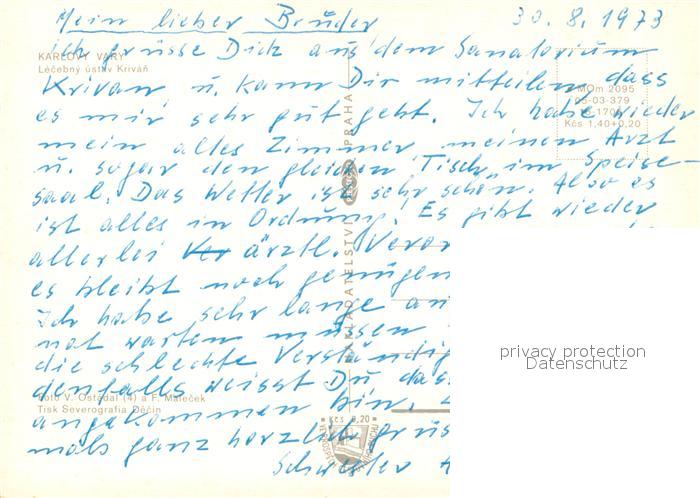 Mein lieber Bruder 30.8.1973
KARLOVY VARY
Léčebný ústav Kriváň
ich grüsse Dich aus dem Sanatorium
Krivan u. kann Dir mitteilen, dass
es mir sehr gut geht. Ich habe wieder
mein altes Zimmer meinen Arzt
u. sogar den gleichen Tisch im Speise-
saal. Das Wetter ist sehr schön. Also es
ist alles in Ordnung! Es gibt wieder
allerlei Ver ärztl. Veror
es bleibt noch genügen
Ich habe sehr lange an
not warten müssen
die schlechte Verständig
denfalls weisst Du das
angekommen bin.
mals ganz herzlich grüs
Schwester A
MOm 2095
05-03-379
Kčs 1,40+0,20
NAKLADATELSTVÍ PRAHA
privacy protection
Datenschutz
Foto V. Ostádal (4) a F. Maleček
Tisk Severografia Děčín
Kčs 0,20